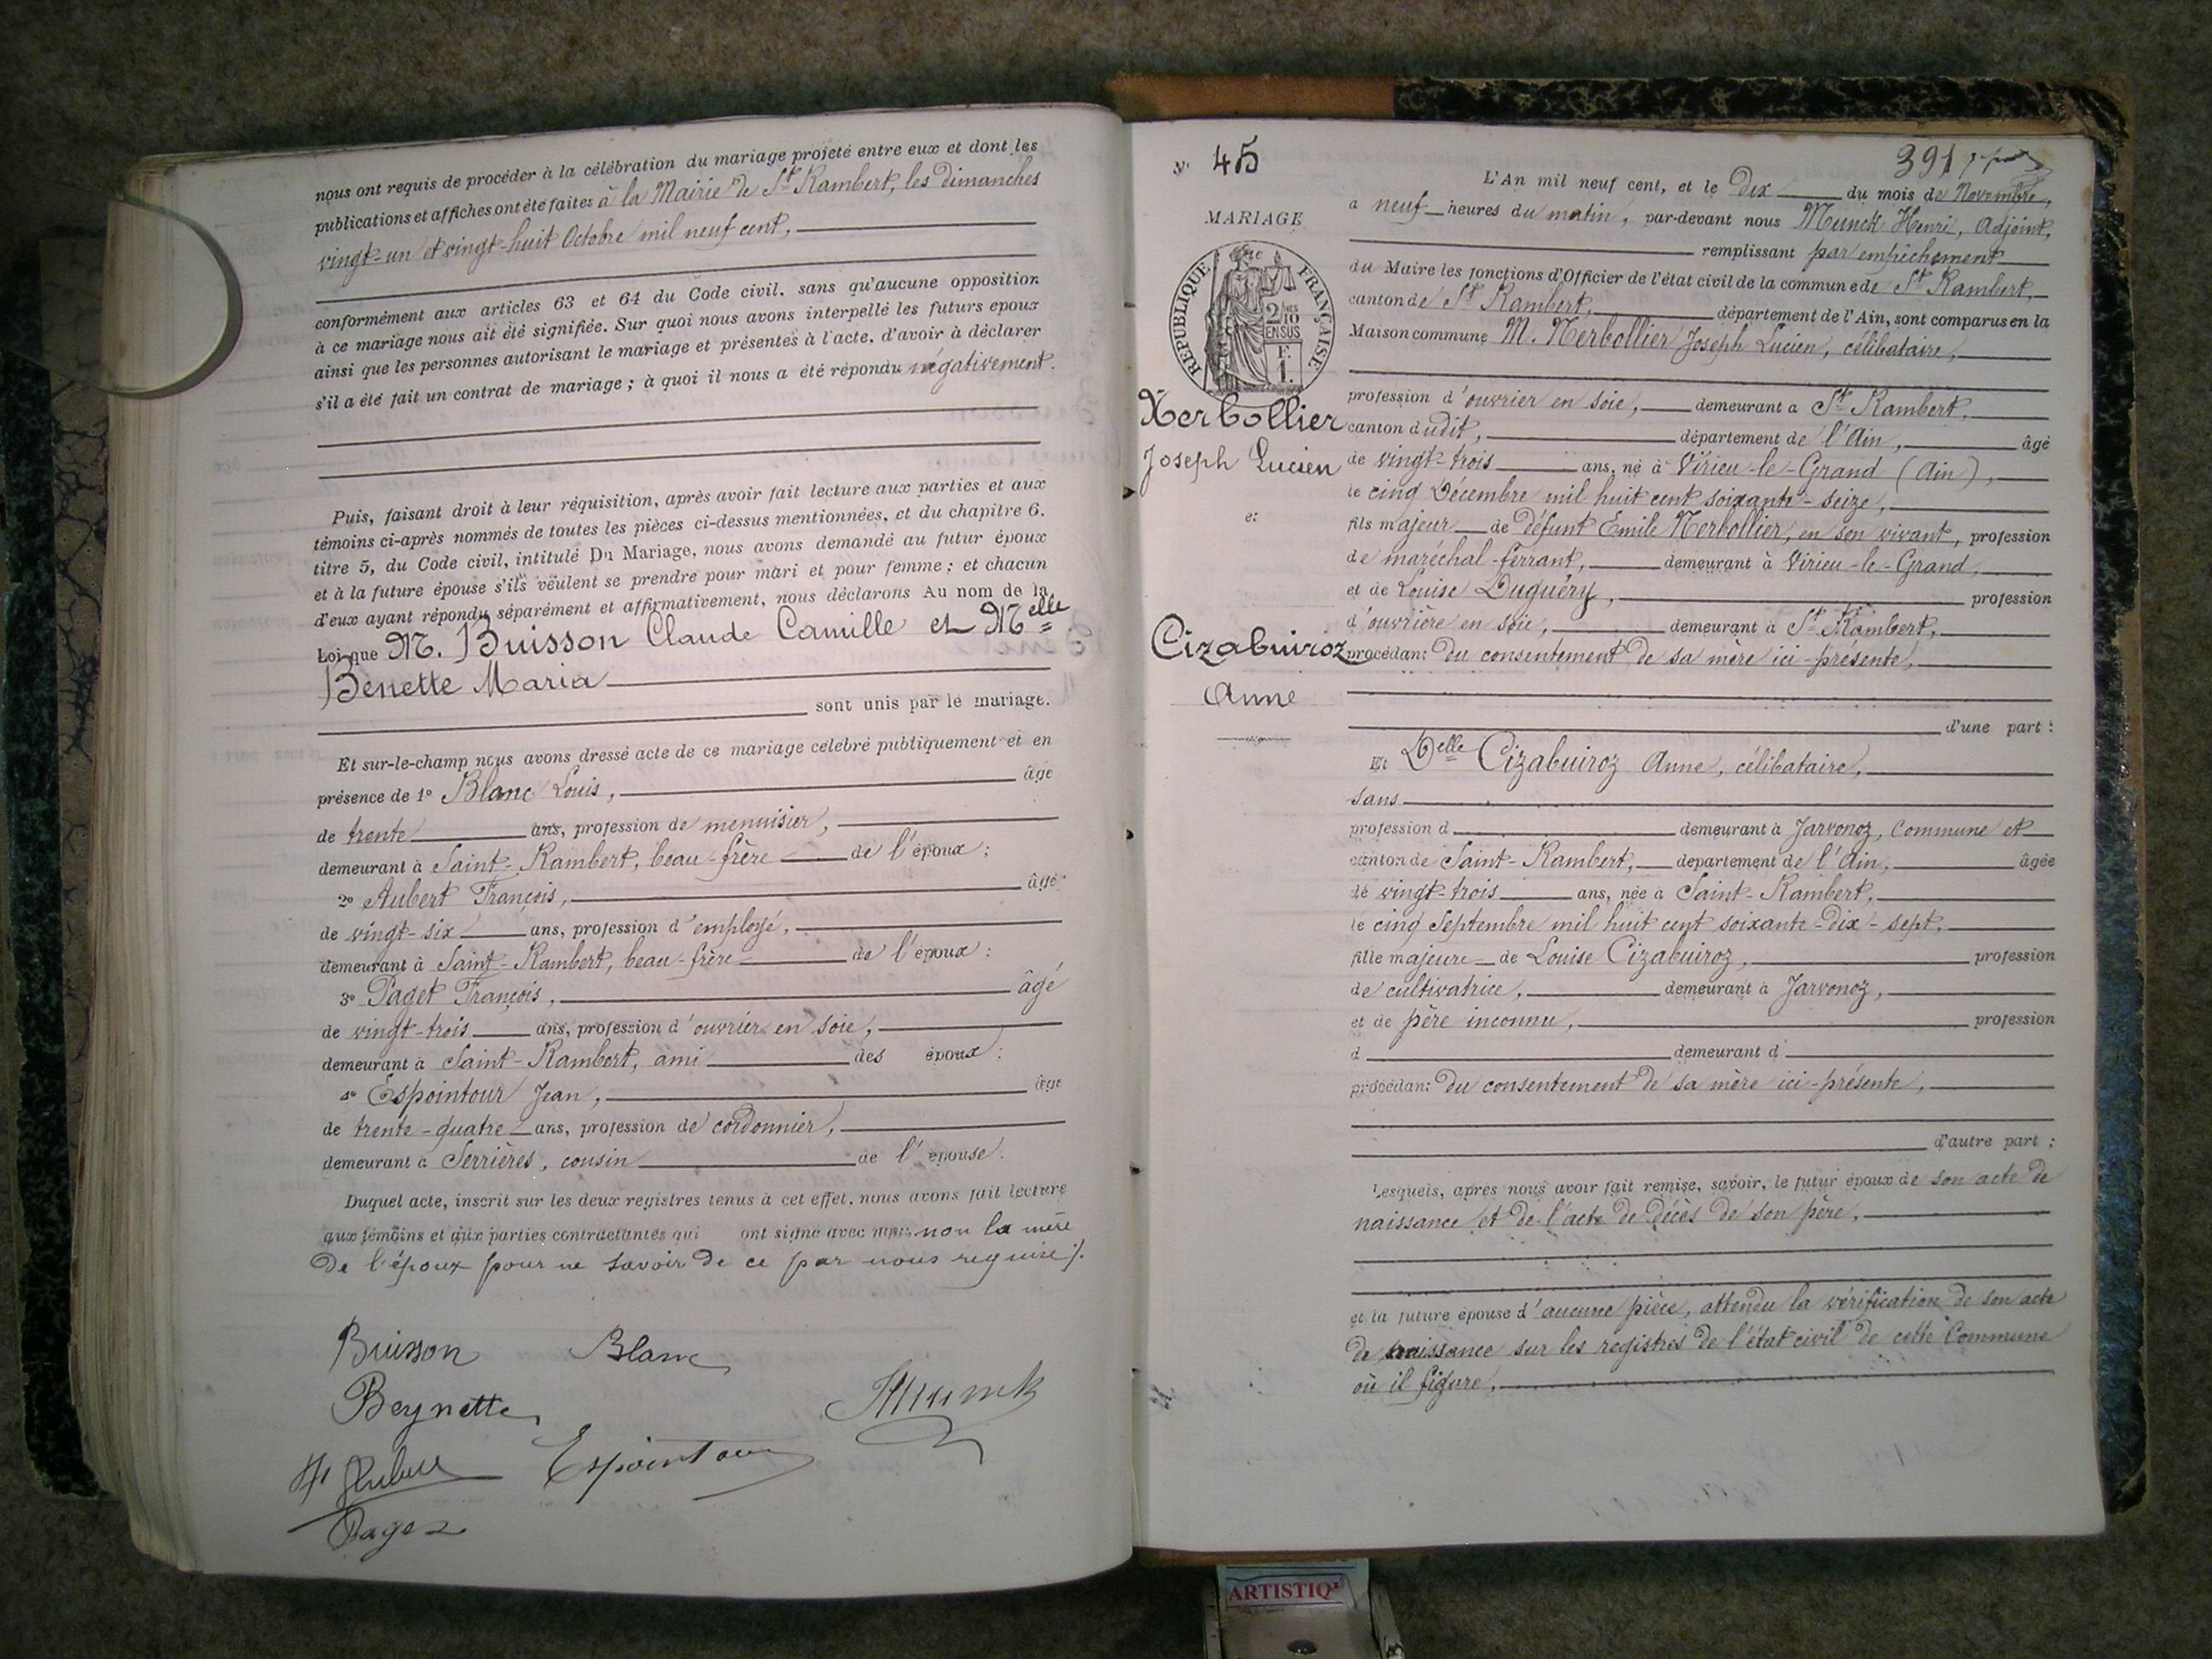 nous ont requis de procéder à la célébration du mariage projeté entre eux et dont les
publications et affiches ont été faites à la Mairie de St Rambert, les dimanches
vingt-un et vingt-huit Octobre mil neuf cent,
conformément aux articles 63 et 64 du Code civil, sans qu'aucune opposition
à ce mariage nous ait été signifiée. Sur quoi nous avons interpellé les futurs epoux
ainsi que les personnes autorisant le mariage et présentes à l'acte, d'avoir à déclarer
s'il a été fait un contrat de mariage ; à quoi il nous a été répondu négativement.
Puis, faisant droit à leur réquisition, après avoir fait lecture aux parties et aux
témoins ci-après nommés de toutes les pièces ci-dessus mentionnées, et du chapitre 6.
titre 5, du Code civil, intitulé Du Mariage, nous avons demandé au futur époux
et à la future épouse s'ils veulent se prendre pour mari et pour femme ; et chacun
d'eux ayant répondu séparément et affirmativement, nous déclarons Au nom de la
Loi que M. Buisson Claude Camille et Melle
Benette Maria
sont unis par le mariage.
Et sur-le-champ nous avons dressé acte de ce mariage célébré publiquement et en
présence de 1° Blanc Louis, âgé
de trente ans, profession de menuisier,
demeurant à Saint-Rambert, beau-frère de l'époux ;
2° Aubert François, âgé
de vingt-six ans, profession d'employé,
demeurant à Saint-Rambert, beau-frère de l'époux :
3° Paget François, âgé
de vingt-trois ans, profession d'ouvrier en soie,
demeurant à Saint-Rambert, ami des époux :
4° Espointour Jean, âgé
de trente-quatre ans, profession de cordonnier,
demeurant à Serrières, cousin de l'épouse.
Duquel acte, inscrit sur les deux registres tenus à cet effet, nous avons fait lecture
aux témoins et aux parties contractantes qui ont signé avec nous non la mère
de l'époux pour ne savoir de ce par nous requise ;.
Buisson Blanc
Beynette
Munck
Espointour
N° 45
391
MARIAGE
REPUBLIQUE FRANÇAISE
2/10
EN SUS
F.
1.
Nerbollier
Joseph Lucien
et
Cizabuiroz
Anne
L'An mil neuf cent, et le Dix du mois de Novembre,
a neuf heures du matin, par-devant nous Munck Henri, Adjoint,
remplissant par empêchement
du Maire les fonctions d'Officier de l'état civil de la commune de St Rambert,
canton de St Rambert, département de l'Ain, sont comparus en la
Maison commune M. Nerbollier Joseph Lucien, célibataire,
profession d'ouvrier en soie, demeurant a St Rambert,
canton dudit, département de l'Ain, âgé
de vingt-trois ans, né à Virieu-le-Grand (Ain),
le cinq Décembre mil huit cent soixante-seize,
fils majeur de défunt Emile Nerbollier, en son vivant, profession
de maréchal-ferrant, demeurant à Virieu-le-Grand,
et de Louise Duguéry, profession
d'ouvrière en soie, demeurant à St Rambert,
procédant du consentement de sa mère ici-présente,
d'une part :
Et Delle Cizabuiroz Anne, célibataire,
sans
profession d demeurant à Jarvonoz, Commune et
canton de Saint-Rambert, département de l'Ain, âgée
de vingt-trois ans, née à Saint-Rambert,
le cinq Septembre mil huit cent soixante-dix-sept,
fille majeure de Louise Cizabuiroz, profession
de cultivatrice, demeurant à Jarvonoz,
et de père inconnu, profession
d demeurant d
procédant du consentement de sa mère ici-présente,
d'autre part ;
Lesquels, après nous avoir fait remise, savoir, le futur époux de son acte de
naissance et de l'acte de décès de son père,
et la future épouse d'aucune pièce, attendu la vérification de son acte
de naissance sur les registres de l'état civil de cette Commune
où il figure,
ARTISTIQ